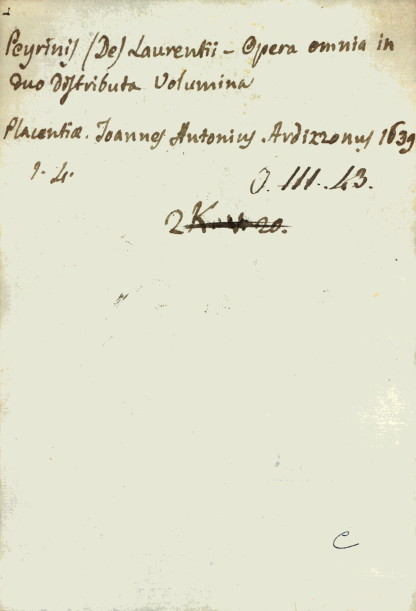 Peyrinis (De) Laurentii - Opera omnia in
duo Distributa Volumina
Placentiæ. Joannes Antonius Ardizzonus 1639
J. III. 43.
2 K. V. 20.
C